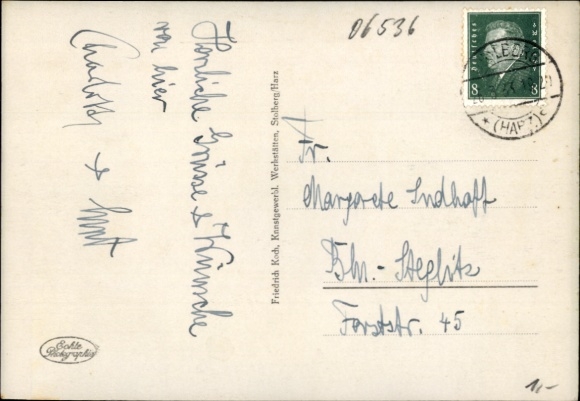 06536
Herzliche Grüsse & Wünsche
von hier
Charlotte &
Friedrich Koch, Kunstgewerbl. Werkstätten, Stolberg/Harz
DEUTSCHES
8 8
(HARZ)
Fr.
Margarete Sudhoff
Bln.-Steglitz
Forststr. 45
Echte
Photographie
1,-